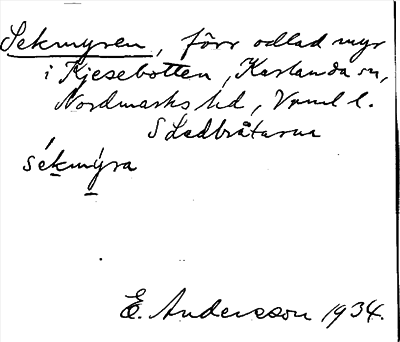 Sekmyren, förr odlad myr
i Kjesebotten, Karlanda sn,
Nordmarks hd, Vrml l.
S Ledbråtarna
sékmýra
E. Andersson 1934.